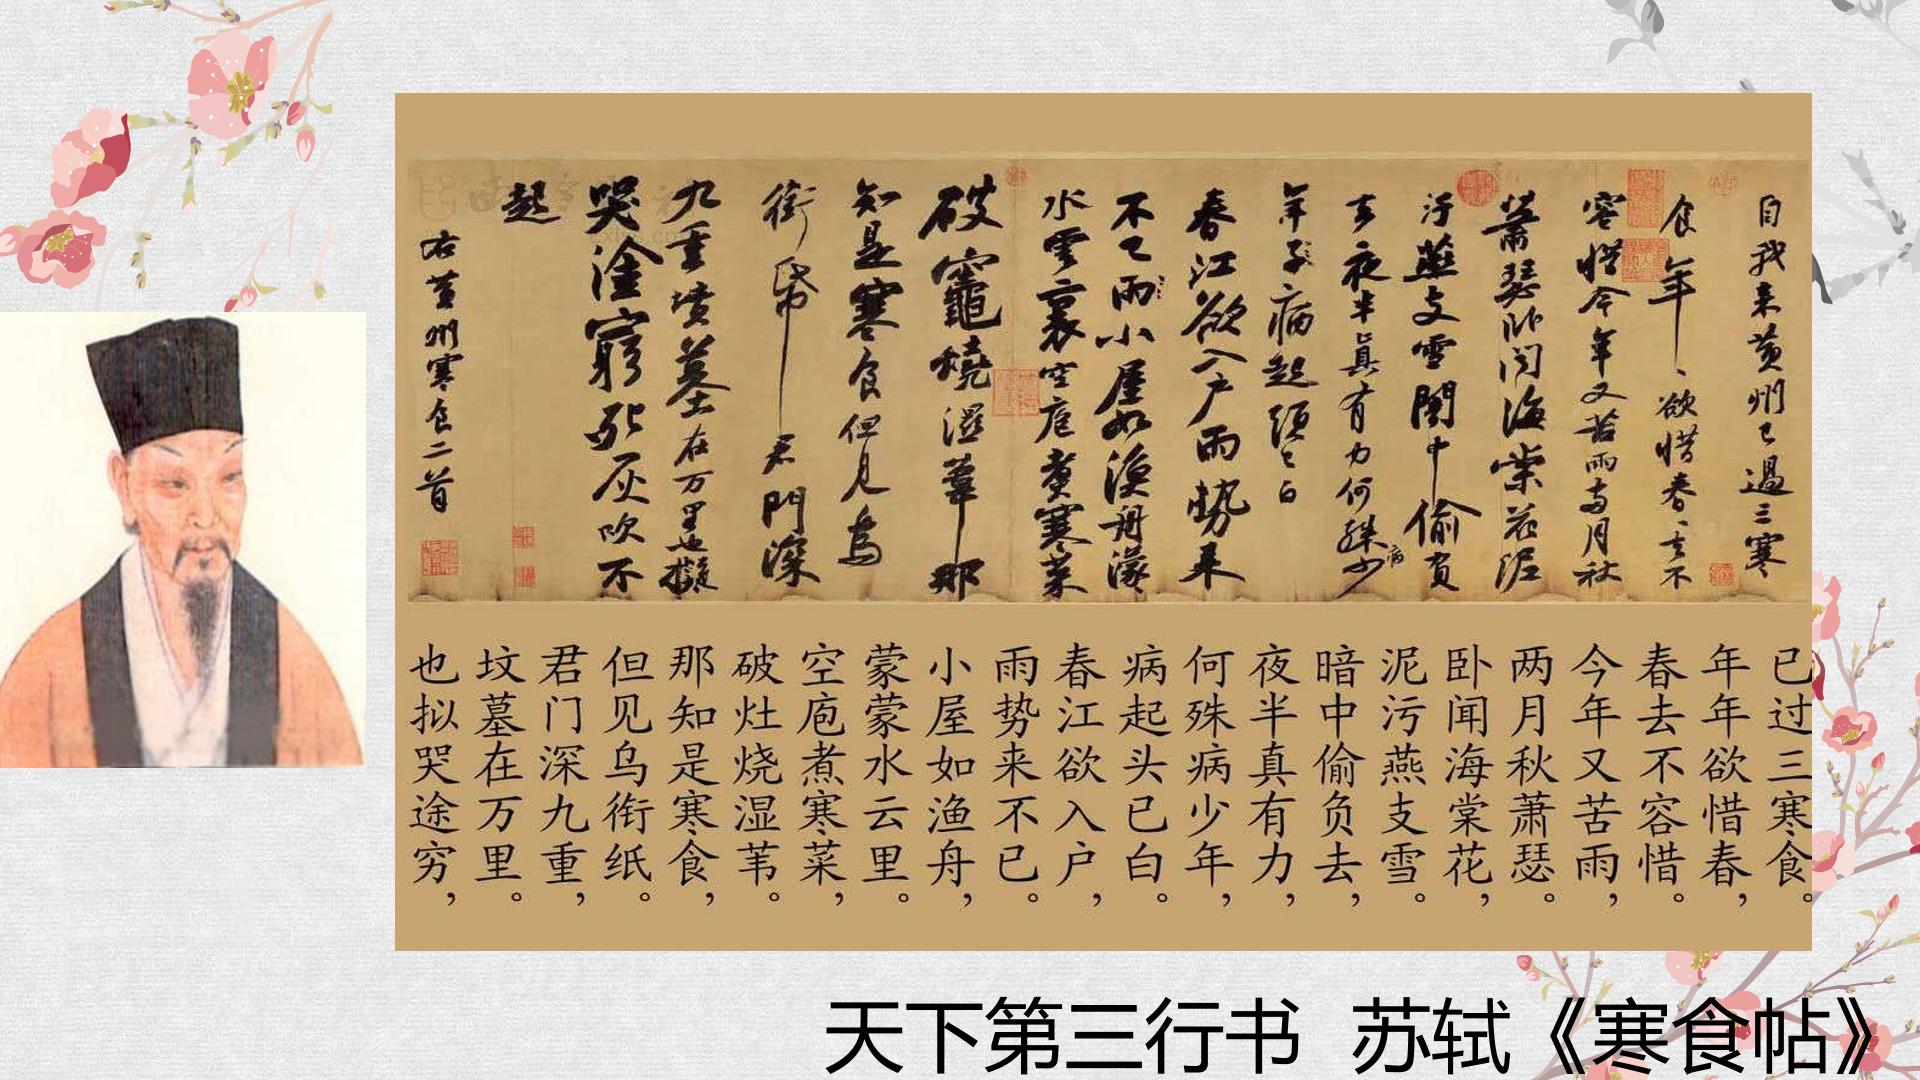 自我来黄州已過三寒
食年、欲惜春、去不
容惜今年又苦雨两月秋
蕭瑟卧聞海棠花泥
汙燕支雪闇中偷負
去夜半真有力何殊少
病
年子病起頭已白
春江欲入户雨勢来
不已雨小屋如漁舟濛
水雲裏空庖煮寒菜
破竈燒濕葦那
知是寒食但见烏
銜帋君門深
九重墳墓在万里也擬
哭塗窮死灰吹不
起
右黄州寒食二首
已过三寒食。
年年欲惜春，
春去不容惜。
今年又苦雨，
两月秋萧瑟。
卧闻海棠花，
泥污燕支雪。
暗中偷负去，
夜半真有力，
何殊病少年，
病起头已白。
春江欲入户，
雨势来不已。
小屋如渔舟，
蒙蒙水云里。
空庖煮寒菜，
破灶烧湿苇。
那知是寒食，
但见乌衔纸。
君门深九重，
坟墓在万里。
也拟哭途穷，
天下第三行书 苏轼《寒食帖》